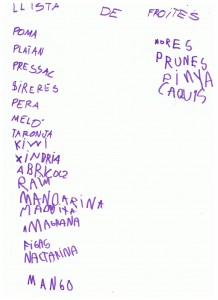 LLISTA DE FROITES
POMA
PLATAN
PRESSAC
SIRERES
PERA
MELÓ
TARONJA
KIWI
XINDRIA
ABRICOC
RAIM
MANDARINA
MADUIXA
MAGRANA
FIGAS
NACTARINA
MANGO
MORES
PRUNES
PINYA
CAQUIS